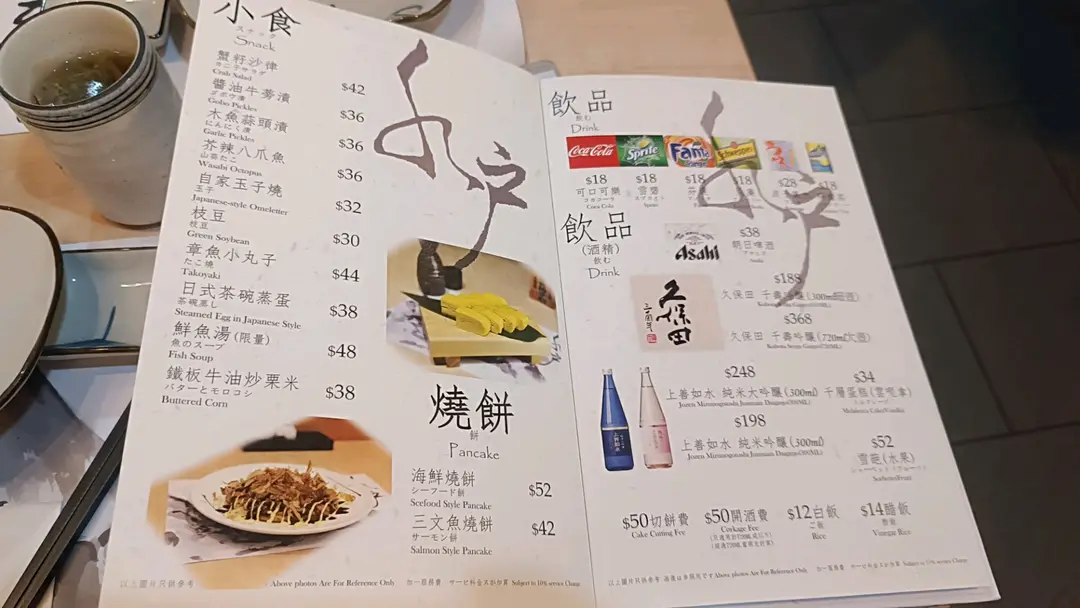 小食
スナック
Snack
蟹籽沙律
カニ子サラダ
Crab Salad
$42
醬油牛蒡漬
ゴボウ漬
Gobo Pickles
$36
木魚蒜頭漬
にんにく漬
Garlic Pickles
$36
芥辣八爪魚
山葵たこ
Wasabi Octopus
$36
自家玉子燒
玉子
Japanese-style Omeletter
$32
枝豆
枝豆
Green Soybean
$30
章魚小丸子
たこ燒
Takoyaki
$44
日式茶碗蒸蛋
茶碗蒸し
Steamed Egg in Japanese Style
$38
鮮魚湯(限量)
魚のスープ
Fish Soup
$48
鐵板牛油炒粟米
バターとモロコシ
Buttered Corn
$38
燒餅
餅
Pancake
海鮮燒餅
シーフード餅
Seefood Style Pancake
$52
三文魚燒餅
サーモン餅
Salmon Style Pancake
$42
以上圖片只供參考
Above photos Are For Reference Only
加一服務費 サービ料金又が加算 Subject to 10% service Charge
飲品
飲む
Drink
Coca-Cola
Sprite
Fanta
Schweppes
$18
$18
$18
$18
$28
$18
可口可樂
コカコーラ
Coca Cola
雪碧
スプライト
飲品
(酒精)
飲む
Drink
Asahi
$38
朝日啤酒
Asahi
久保田
$188
久保田 千壽吟釀(300ml細酒)
$368
久保田 千壽吟釀(720ml大酒)
$248
上善如水 純米大吟釀(300ml)
Jozen Mizunogotoshi Junmain Daiginjo(300ML)
$198
上善如水 純米吟釀(300ml)
$34
千層蛋糕(雲呢拿)
$52
雪葩(水果)
$50切餅費
Cake Cutting Fee
$50開酒費
Corkage Fee
$12白飯
ご飯
Rice
$14醋飯
酢飯
Vinegar Rice
以上圖片只供參考
Above photos Are For Reference Only
加一服務費 サービ料金又が加算 Subject to 10% service Charge